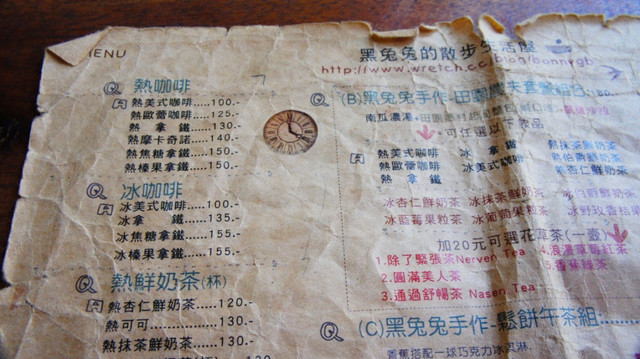 MENU
黑兔兔的散步生活屋
http://www.wretch.cc/blog/bonnygb
熱咖啡
熱美式咖啡.....100.-
熱歐蕾咖啡.....125.-
熱 拿 鐵.....130.-
熱摩卡奇諾.....140.-
熱焦糖拿鐵.....150.-
熱榛果拿鐵.....150.-
冰咖啡
冰美式咖啡.....100.-
冰拿 鐵.....135.-
冰焦糖拿鐵.....155.-
冰榛果拿鐵.....155.-
熱鮮奶茶(杯)
熱杏仁鮮奶茶....120.-
熱可可..............130.-
熱抹茶鮮奶茶....130.-
130.-
(B)黑兔兔手作-田園農夫套餐組合
南瓜濃湯+田園
可任選以下飲品
熱美式咖啡 冰 拿 鐵 熱抹茶鮮奶茶
熱歐蕾咖啡 冰美式咖啡 熱伯爵鮮奶茶
熱 拿 鐵 熱杏仁鮮奶茶
冰杏仁鮮奶茶 冰抹茶鮮奶茶 冰伯爵鮮奶茶
冰藍莓果粒茶 冰葡萄果粒茶 冰野玫香桔
加20元可選花草茶(一壺)
1.除了緊張茶Nerven Tea
2.圓滿美人茶
3.通過舒暢茶 Nasen Tea
4.浪漫草莓紅茶
5.香蕉綠茶
(C)黑兔兔手作-鬆餅午茶組
香蕉搭配一球巧克力冰淇淋